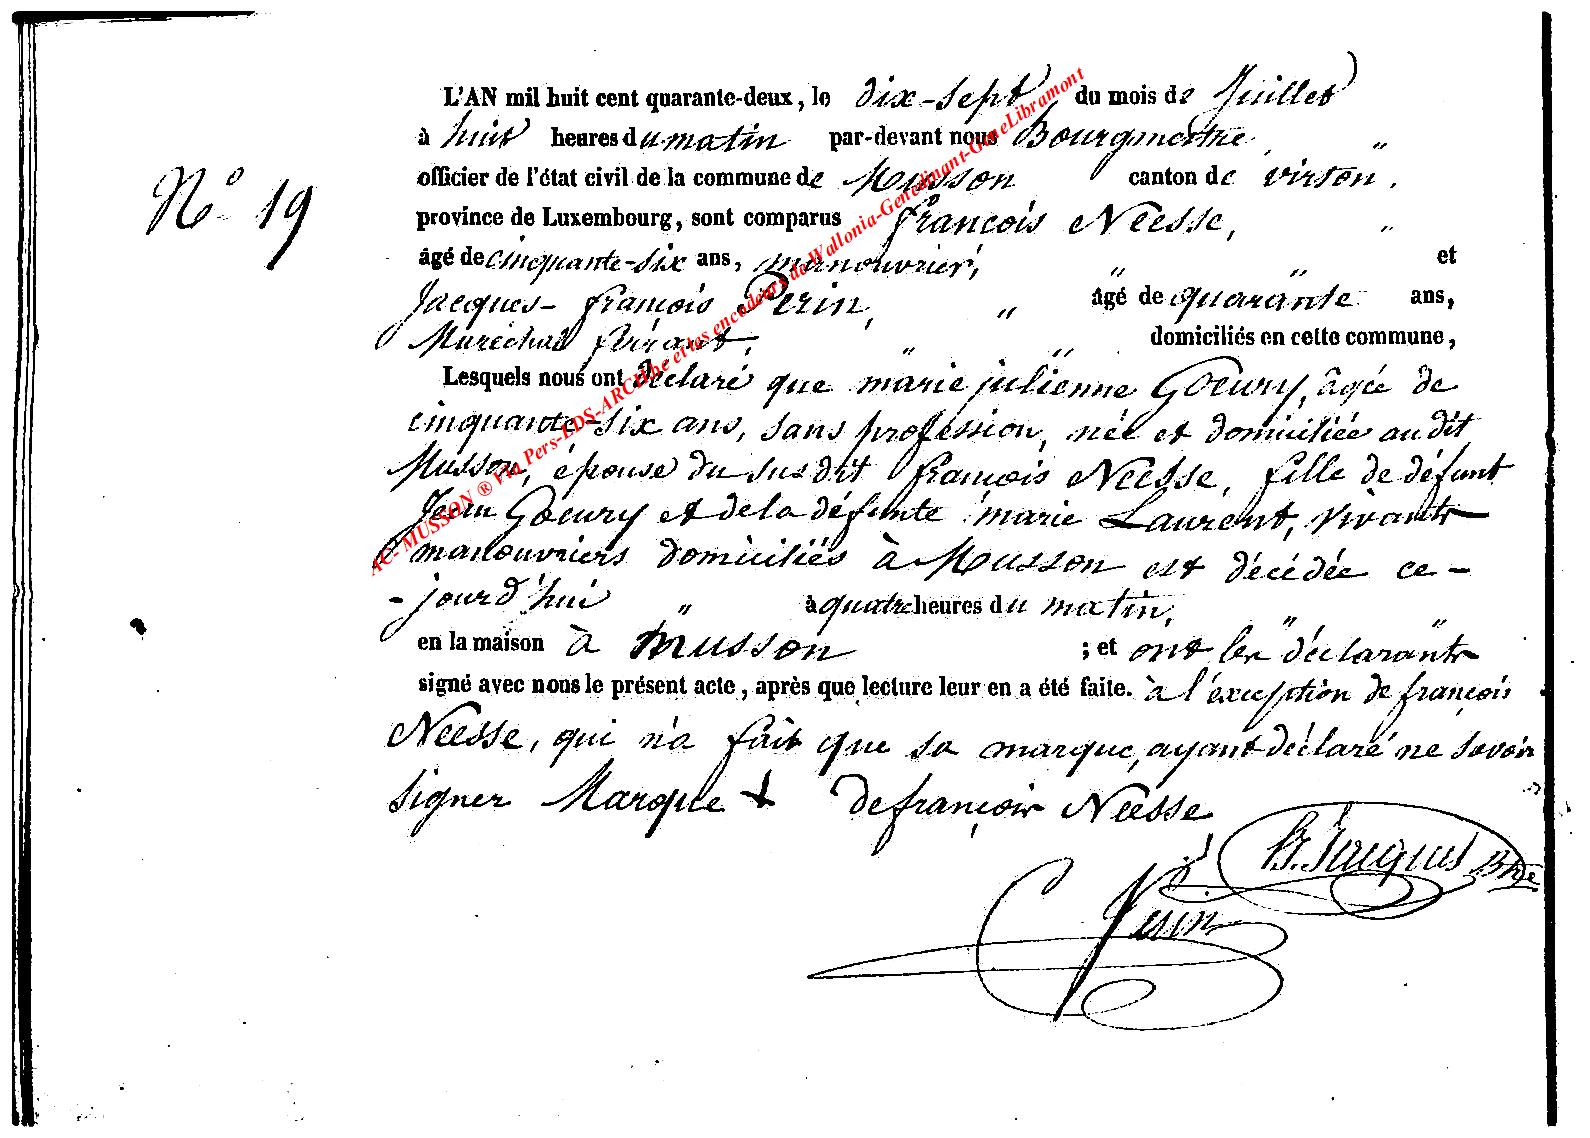 L'AN mil huit cent quarante-deux, le dix-sept du mois de Juillet
à huit heures du matin par-devant nous Bourgmestre, "
N° 19
officier de l'état civil de la commune de Musson canton de virton.
province de Luxembourg, sont comparus françois Néesse, "
âgé de cinquante-six ans, manouvrier, " " et
Jacques-françois Perin, " âgé de quarante ans,
Maréchal ferrant, " " domiciliés en cette commune,
Lesquels nous ont déclaré que marie julienne Goeury, âgée de
cinquante-six ans, sans profession, née et domiciliée audit
Musson, épouse du susdit françois Néesse, fille de défunt
Jean Goeury et de la défunte marie Laurent, vivants
manouvriers domiciliés à Musson est décédée ce-
-jourd'hui " à quatre heures du matin, " "
en la maison à Musson ; et ont les déclarants
signé avec nous le présent acte, après que lecture leur en a été faite. à l'exception de françois
Néesse, qui n'a fait que sa marque, ayant déclaré ne savoir
signer Marque + de françois Néesse
Jacques
Perin
AC-MUSSON ® Via Pers-LDS-ARCH.be et les encodeurs de Wallonia-Genedinant-GeneLibramont